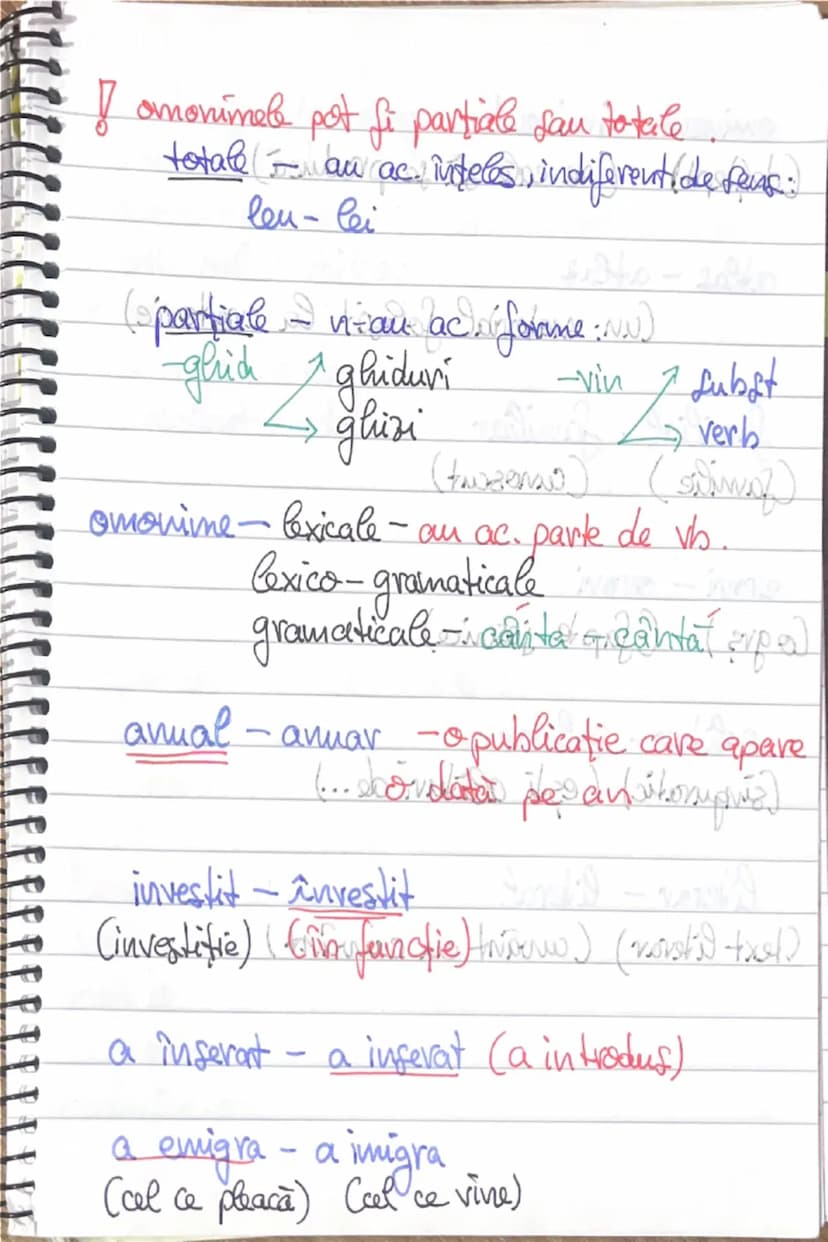 ! omonimele pot fi parțiale sau totale.
totale – au ac. înțeles, indiferent de sens:
leu – lei
parțiale – n-au ac. forme:
-ghid ghiduri -vin subst
ghizi verb
omonime – lexicale – au ac. parte de vb.
lexico-gramaticale
gramaticale – cânta – cântá
anual – anuar – o publicație care apare
o dată pe an
investit – învestit
(investiție) (în funcție)
a înserat – a inserat (a introdus)
a emigra – a imigra
(cel ce pleacă) (cel ce vine)